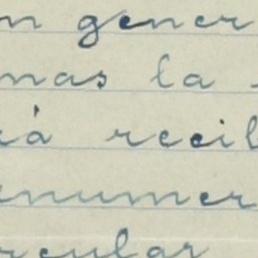 n gener
mas la
rá recib
enumer
rcular